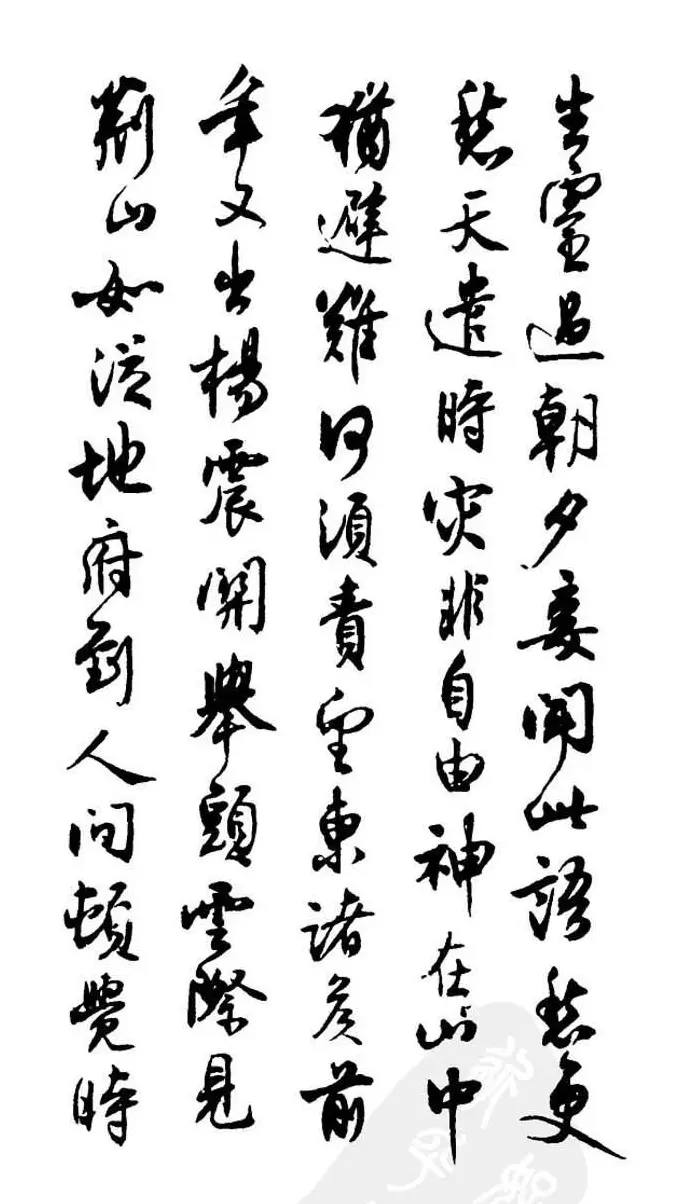 生靈過朝夕妾聞此語愁更
愁天遣時災非自由神在山中
猶避難何須責望東諸侯前
年又出楊震關舉頭雲際見
荊山如從地府到人間頓覺時